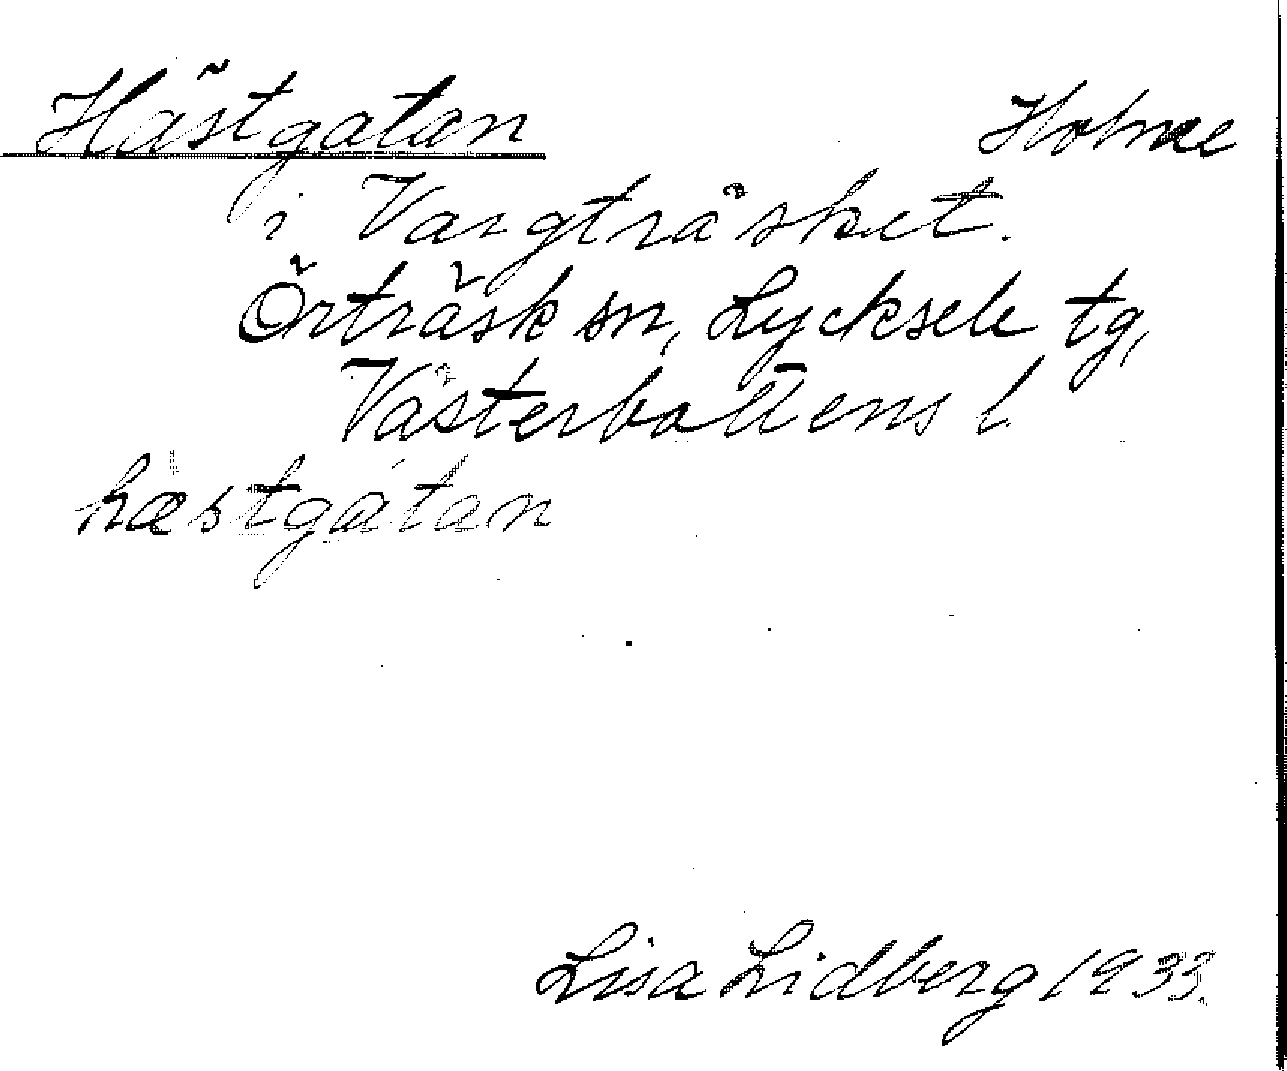 Hästgatan Holme
i Vargträsket.
Örträsk sn, Lycksele tg,
Västerbottens l.
hæstgàtan
Lisa Lidberg 1933.